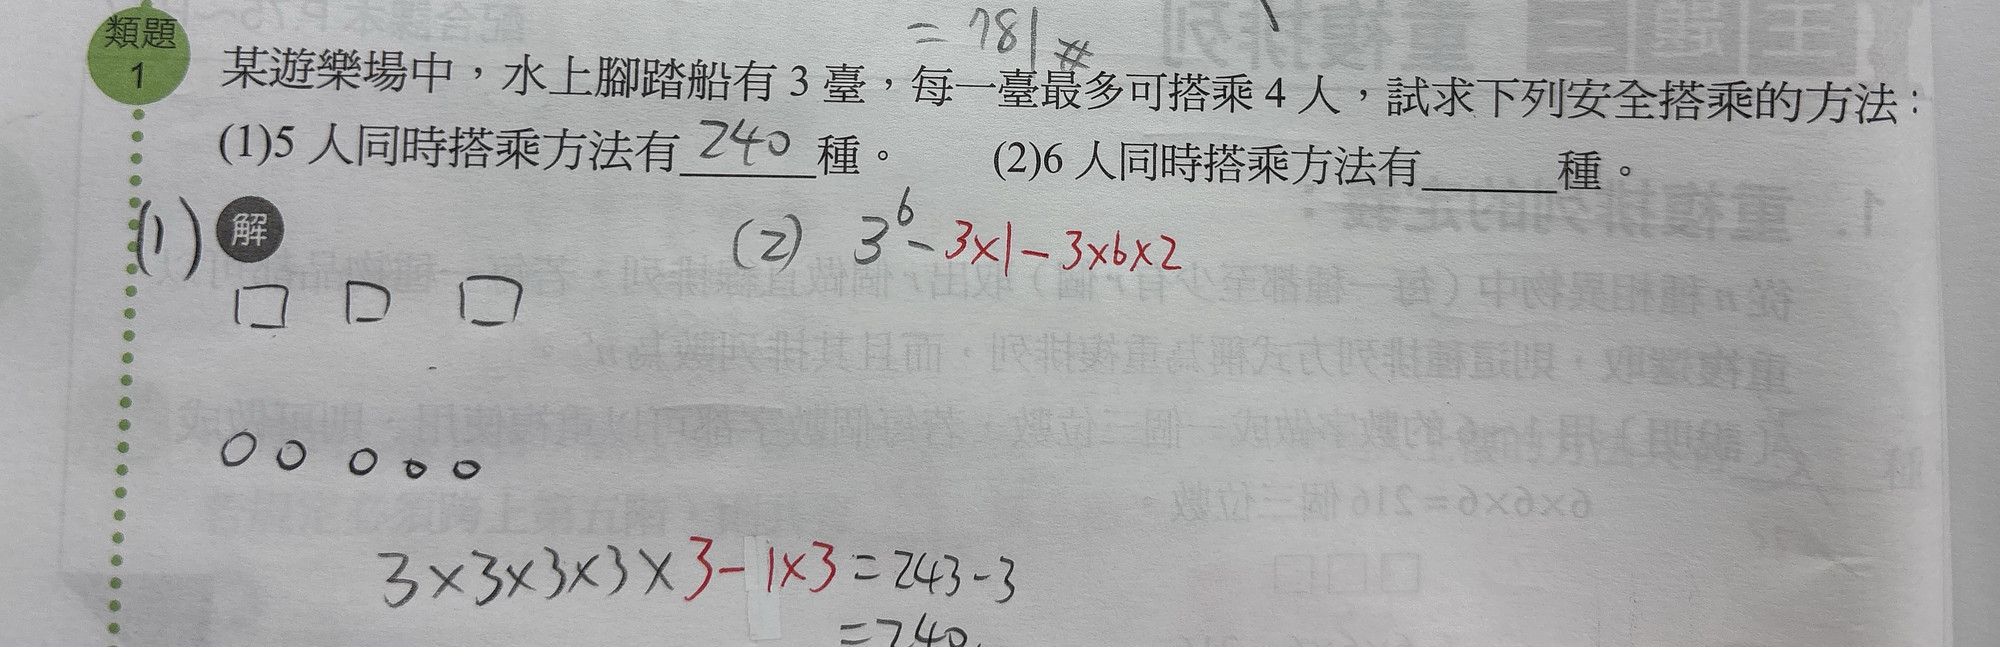 = 781 #
類題
1
某遊樂場中，水上腳踏船有 3 臺，每一臺最多可搭乘 4 人，試求下列安全搭乘的方法：
(1)5 人同時搭乘方法有 240 種。 (2)6 人同時搭乘方法有______種。
(1) 解
(2) 3⁶ - 3×1 - 3×6×2
3×3×3×3×3-1×3 = 243-3
=240.